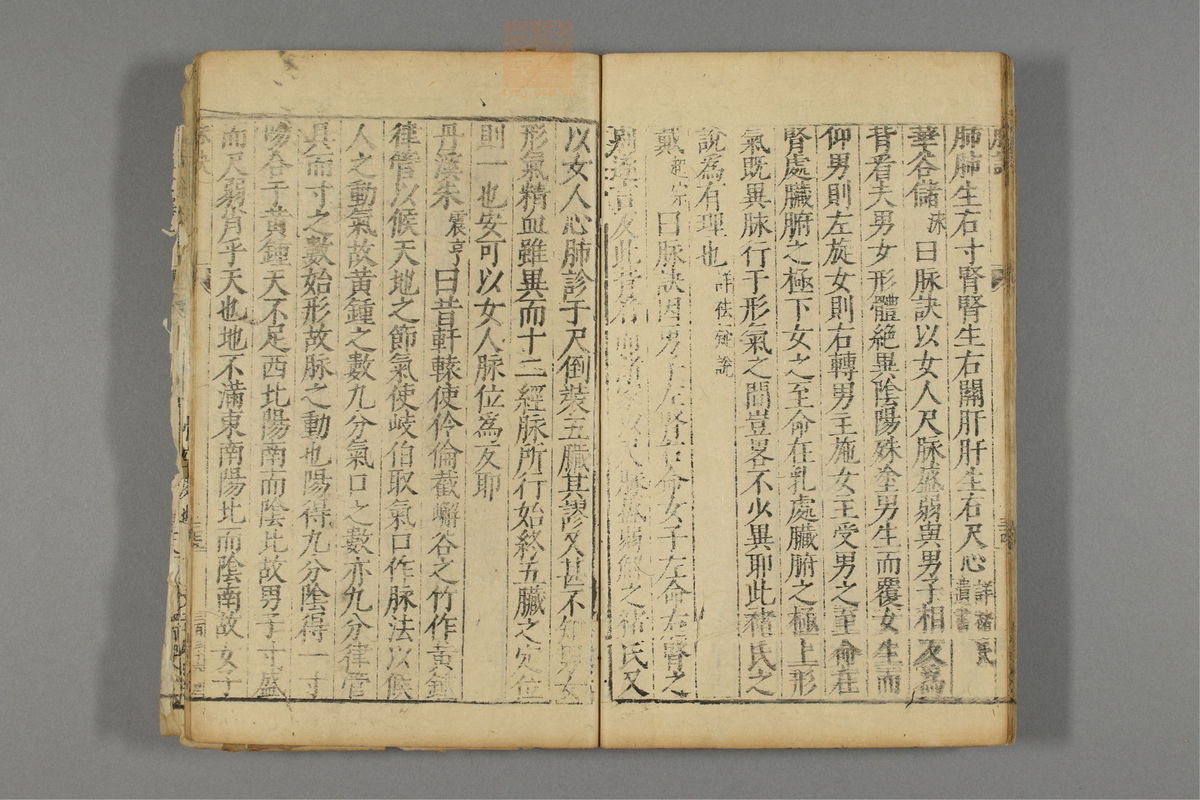 肺肺生右寸腎腎生右關肝肝生右尺心詳褚氏遺書
華谷儲泳曰脉訣以女人尺脉盛弱與男子相反爲
背看夫男女形體絶異陰陽殊塗男生而覆女生而
仰男則左旋女則右轉男主施女主受男之至命在
腎處臟腑之極下女之至命在乳處臟腑之極上形
氣既異脉行于形氣之間豈畧不少異耶此褚氏之
說爲有理也詳祛疑說
戴起宗曰脉訣因男子左腎右命女子左命右腎之
別遂言反此背看而諸家以尺脉盛弱解之褚氏又
以女人心肺診于尺倒裝五臟其謬又甚不知男女
形氣精血雖異而十二經脉所行始終五臟之定位
則一也安可以女人脉位爲反耶
丹溪朱震亨曰昔軒轅使伶倫截嶰谷之竹作黃鍾
律管以候天地之節氣使岐伯取氣口作脉法以候
人之動氣故黃鍾之數九分氣口之數亦九分律管
具而寸之數始形故脉之動也陽得九分陰得一寸
陽合于黃鍾天不足西北陽南而陰北故男子寸盛
而尺弱肖乎天也地不滿東南陽北而陰南故女子